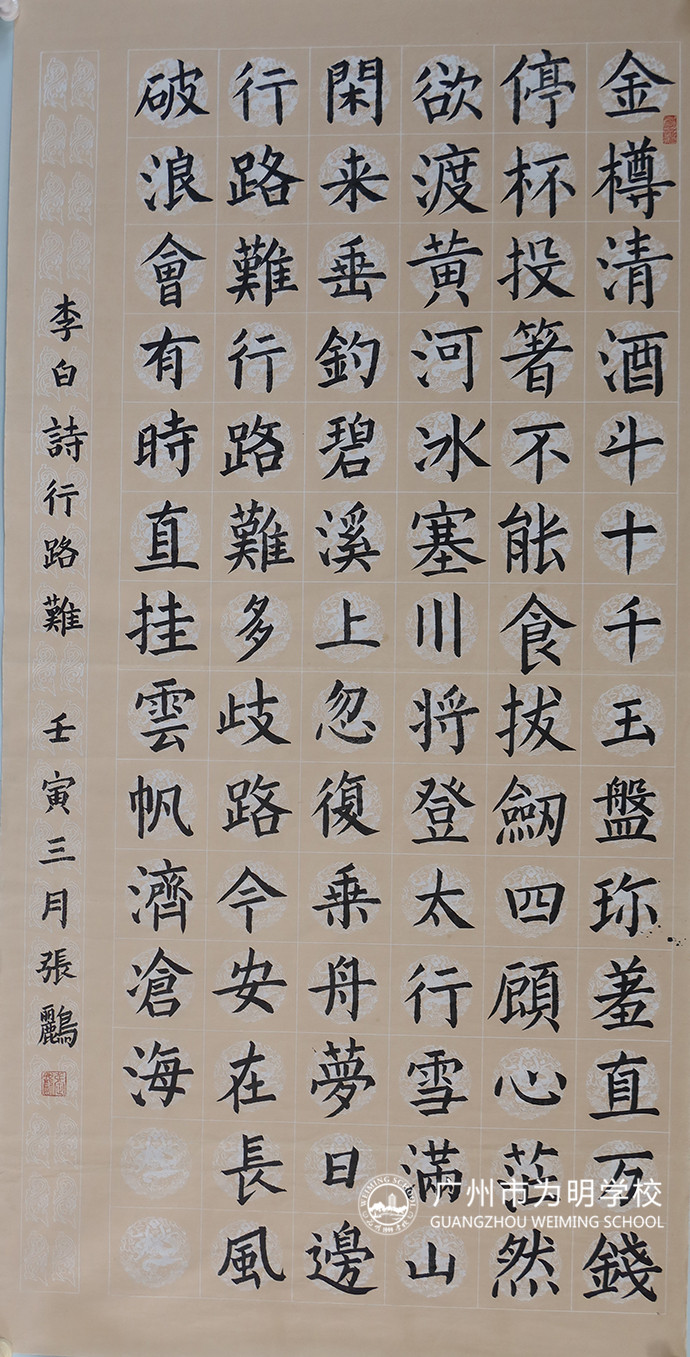 金樽清酒斗十千玉盤珎羞直万錢
停杯投箸不能食拔劒四顧心茫然
欲渡黄河冰塞川将登太行雪满山
閑来垂釣碧溪上忽復乗舟夢日邊
行路難行路難多歧路今安在長風
破浪會有時直挂雲帆濟滄海
李白詩行路難 壬寅三月張鸝
广州市为明学校
GUANGZHOU WEIMING SCHOOL
WEIMING SCHOOL